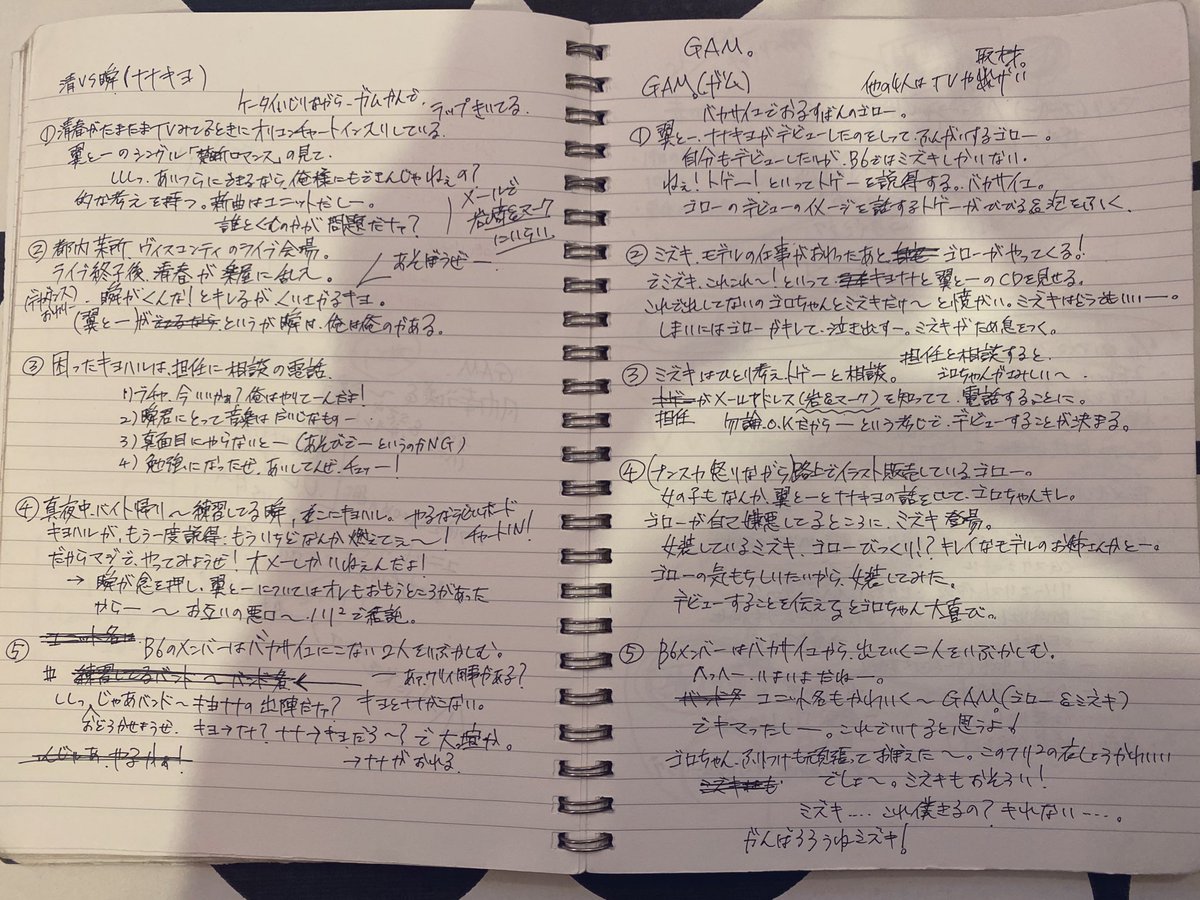 清VS瞬(ナナキヨ)
ケータイいじりながらーガムかんで、ラップきいてる。
①清春がたまたまTVみてるときにオリコンチャートインスリしている。
翼と一のシングル「禁断ロマンス」の見て、
ししっ、あいつらにできるなら、俺様にもできんじゃねぇの?
的な考えを持つ。新曲はユニットだしー。
誰とくむのかが問題だナァ?
メールで
悠&マーク
にいらい。
②都内某所 ヴィスコンティのライブ会場。
ライブ終了後、清春が楽屋に乱入。
あそぼうぜー
瞬がくんな!とキレるがくいさがるキヨ。
(翼と一)が というが瞬は、俺は俺のがある。
③困ったキヨハルは、担任に相談の電話。
1)ブチャ、今いいかぁ?俺はやりてーんだよ!
2)瞬君にとって音楽はだいじなものー
3)真面目にやらないとー(あそびでーというのがNG)
4)勉強になったぜ、あいしてんぜ、チューー!
④真夜中、バイト帰り〜練習してる瞬、そこにキヨハル。
キヨハルが、もう一度説得、もういちどなんか燃えてぇ〜!
チャートIN!
だからマジで、やってみようぜ!オメーしかいねぇんだよ!
→瞬が念を押し、翼と一についてはオレもおもうところがあった
からー〜お互いの悪口〜ノリ2で結託。
⑤B6のメンバーはバカサイユにこない2人をいぶかしむ。
ししっ、じゃあバンド〜キヨナナの出陣だナァ?キヨとナナがこない。
おどろかせようぜ キヨ→ナナ?ナナ→キヨだろ〜?で大喧か。
→ナナがおれる
GAM。
取材。
GAM。(ガム)
他の4人はTVや
バカサイユでおるすばんのゴロー。
①翼と一、ナナキヨがデビューしたのをしって、ふんがいするゴロー。
自分もデビューしたいが、B6ではミズキしかいない。
ねぇ!トゲー!といってトゲーを説得する。バカサイユ。
ゴローのデビューのイメージを話するトゲーがびびる&泡をふく。
②ミズキ、モデルの仕事がおわったあと、ゴローがやってくる!
でミズキ、これこれ〜!といってキヨナナと翼と一のCDを見せる。
これで出してないのゴロちゃんとミズキだけ〜と憤がい。ミズキはどうでもいいー。
しまいにはゴローがキレて、泣き出すー。ミズキがため息をつく。
担任と相談すると、
③ミズキはひとり考え、トゲーと相談。
ゴロちゃんがさみしい〜
がメールアドレス(悠&マーク)を知ってて、電話することに。
担任
勿論、O.Kだから〜という考じで、デビューすることが決まる。
④(プンスカ怒りながら)路上でイラスト販売しているゴロー。
女の子もなんか翼と一とナナキヨの話をしてて、ゴロちゃんキレ。
ゴローが自己嫌悪してるところに、ミズキ登場。
女装しているミズキ、ゴローびっくり!?キレイなモデルのお姉さんかとー。
ゴローの気もちしりたいから、女装してみた。
デビューすることを伝えるとゴロちゃん大喜び。
⑤B6メンバーはバカサイユから、出ていく二人をいぶかしむ。
へっへー、いよいよだねー。
ユニット名もかわいく〜GAM。(ゴロー&ミズキ)
でキマったしー。これでいけると思うよ!
ゴロちゃん、ふりつけも頑張っておぼえた〜。このフリ2の衣しょうかわいい
でしょ〜。ミズキもおそろい!
ミズキ…、これ僕きるの?きれない…。
がんばろうねミズキ!